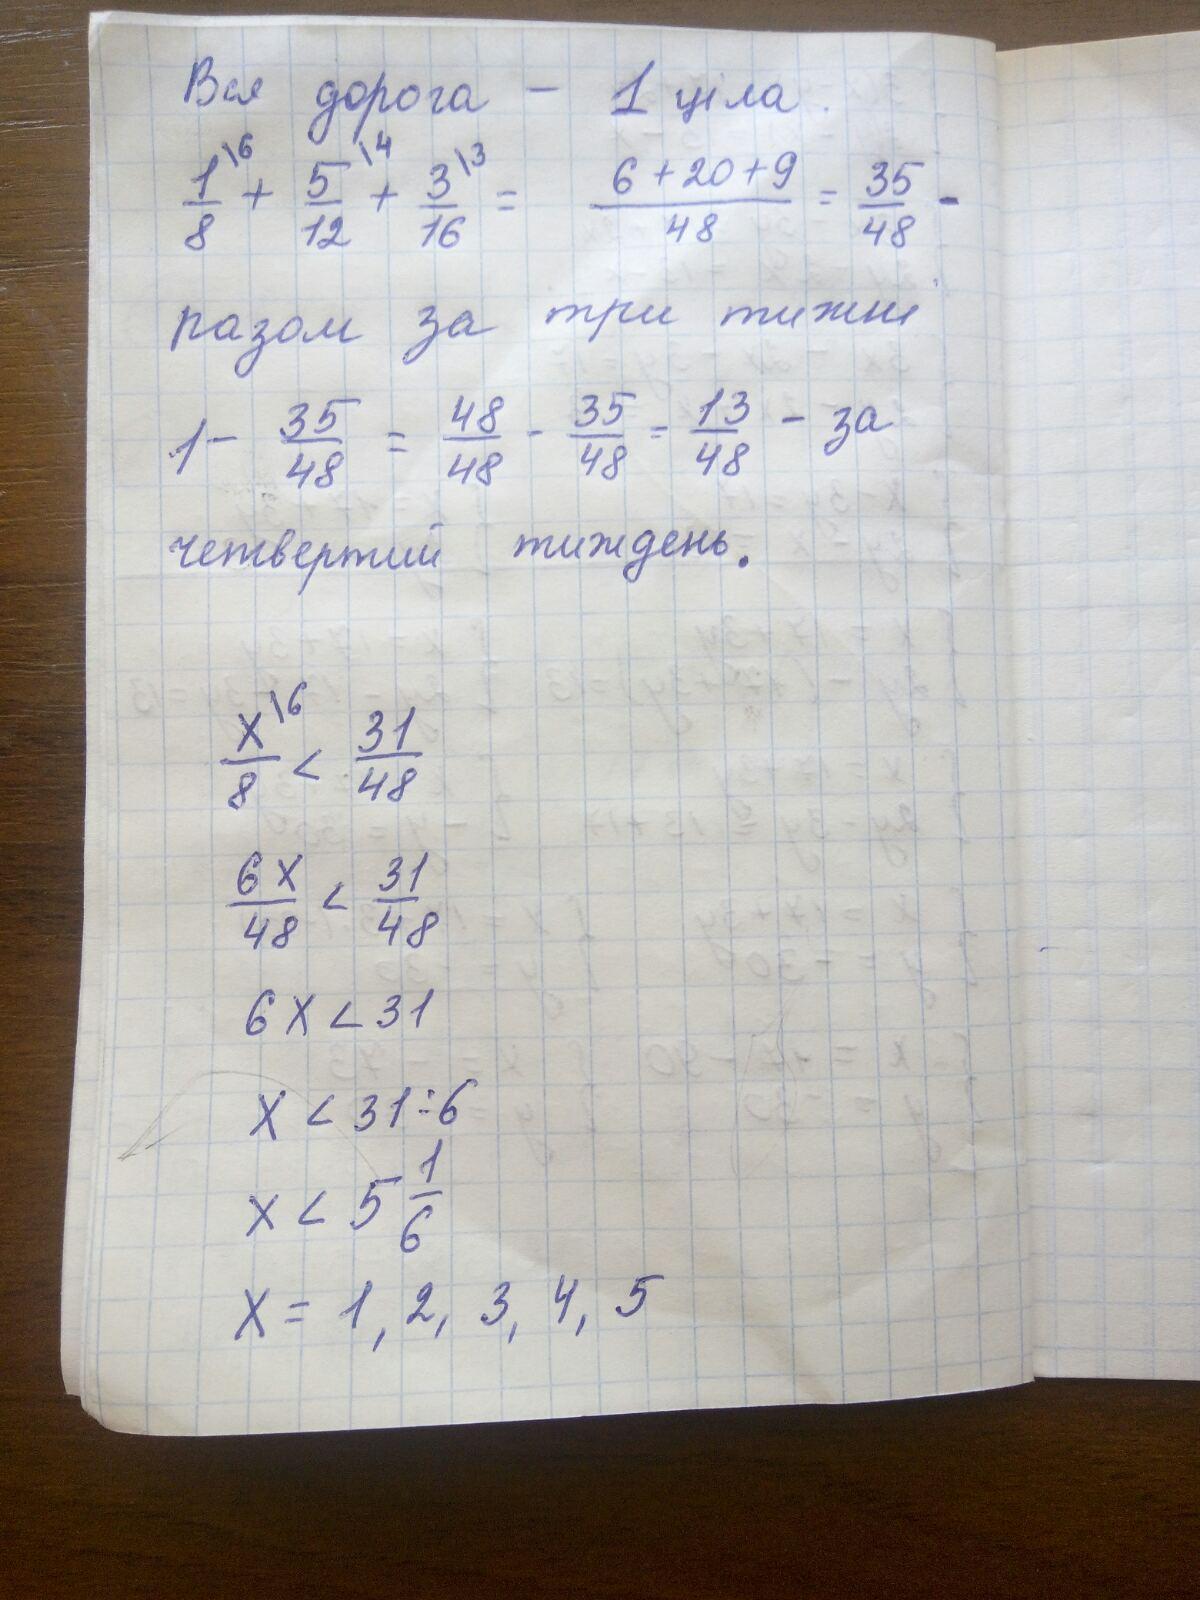 Вся дорога - 1 ціла.
1/8 \6 + 5/12 \4 + 3/16 \3 = (6+20+9)/48 = 35/48 -
разом за три тижні
1 - 35/48 = 48/48 - 35/48 = 13/48 - за
четвертий тиждень.
x/8 \6 < 31/48
6x/48 < 31/48
6x < 31
x < 31÷6
x < 5 1/6
x = 1, 2, 3, 4, 5